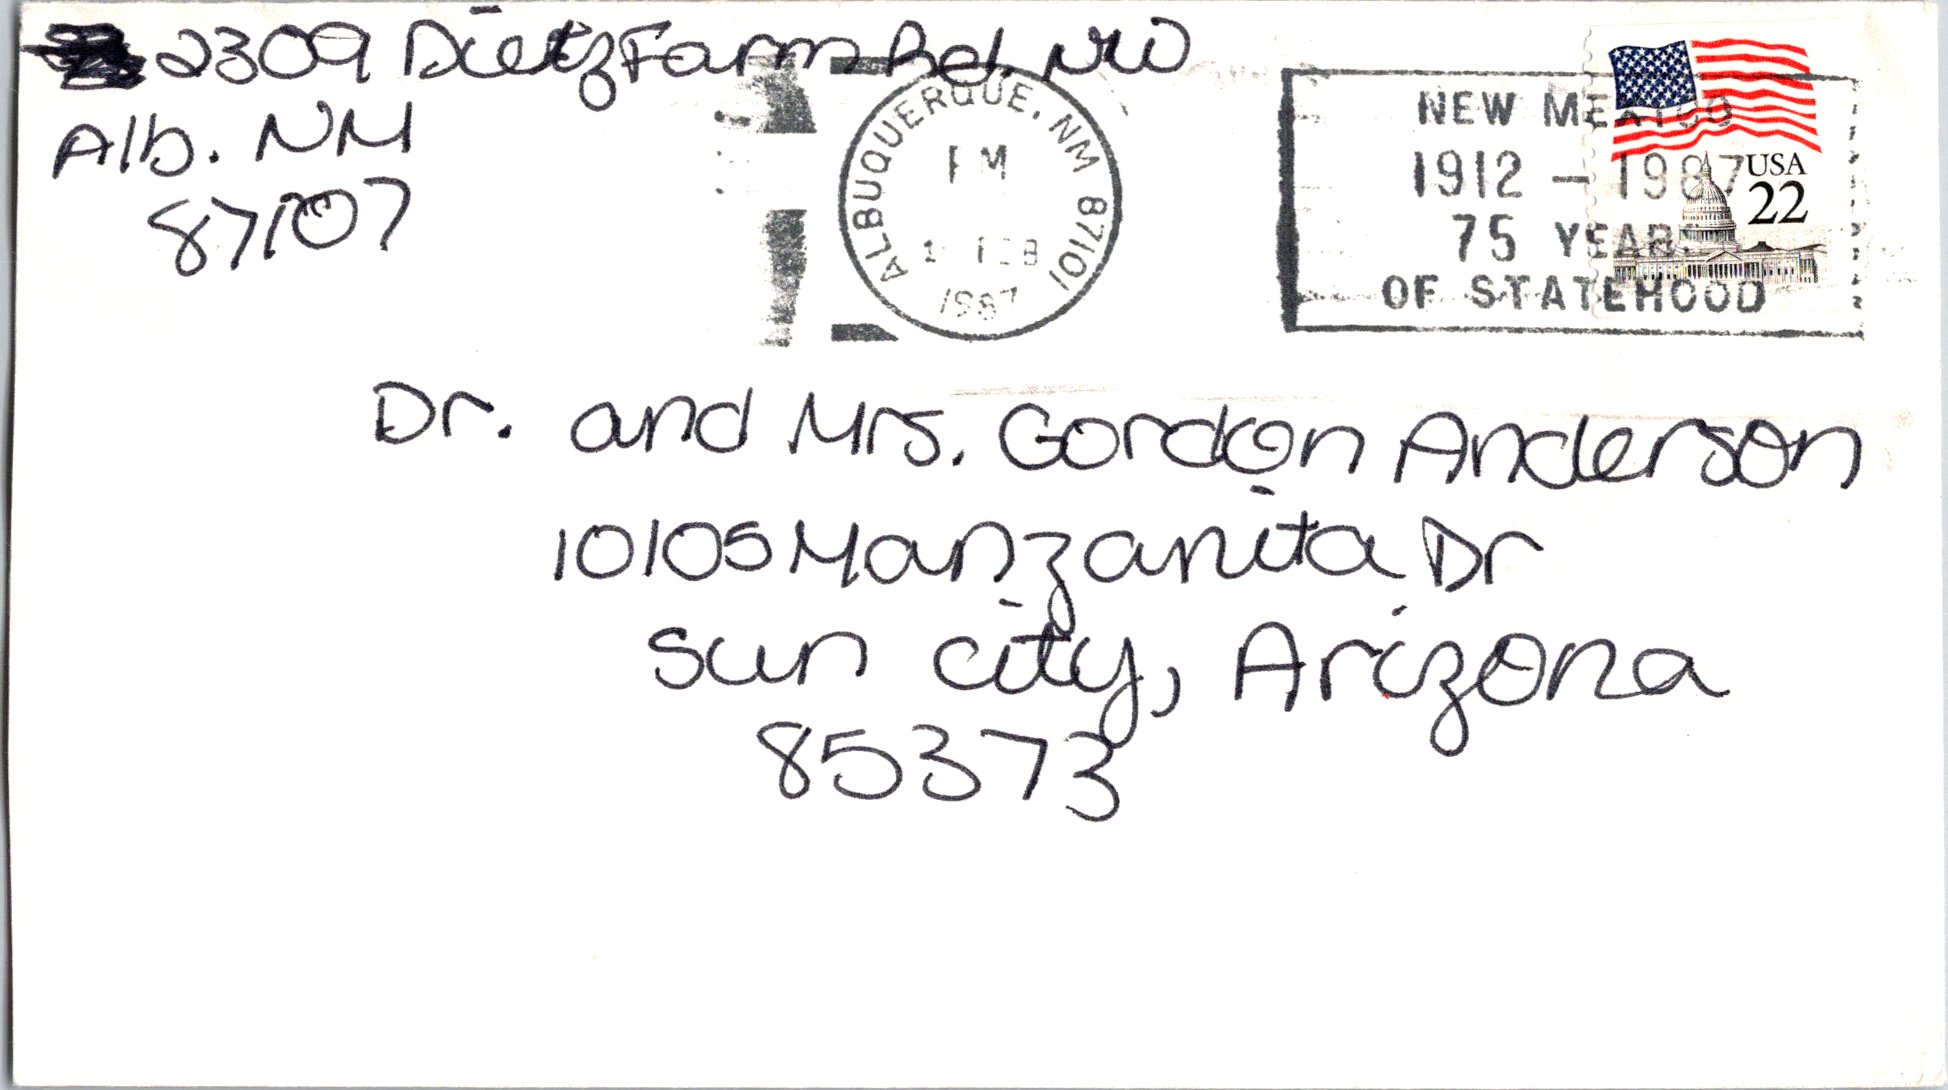 2309 Dietz Farm Rd. NW
Alb. NM
87107
ALBUQUERQUE, NM 87101
PM
FEB
1987
NEW MEXICO
1912 - 1987
75 YEARS
OF STATEHOOD
USA
22
Dr. and Mrs. Gordon Anderson
10105 Manzanita Dr
Sun City, Arizona
85373